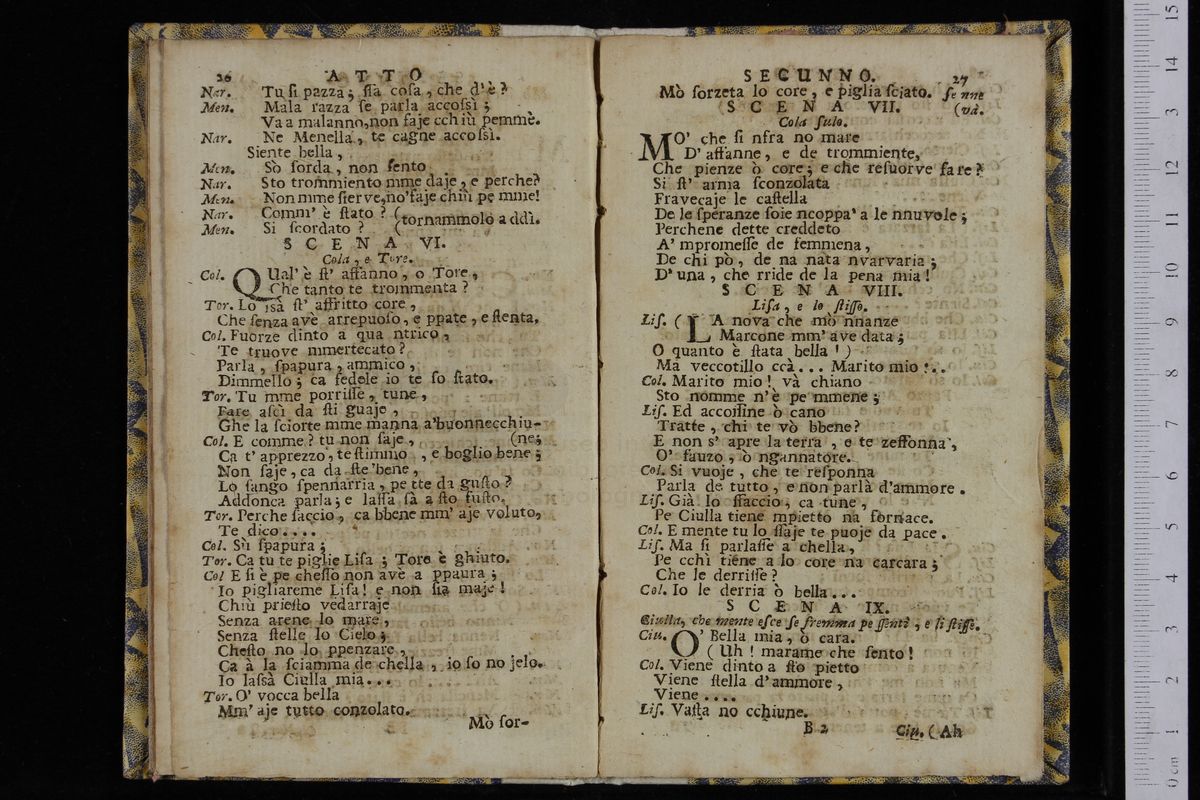 26 ATTO
Nar. Tu si pazza; ſia coſa, che d'è?
Men. Mala razza ſe parla accoſsì;
Va a malanno, non ſaje cchiù pemmè.
Nar. Ne Menella, te cagne accoſsì.
Siente bella,
Men. Sò ſorda, non ſento
Nar. Sto trommiento mme daje, e perche?
Men. Non mme ſierve, no'faje chiù pe mme!
Nar. Comm' è ſtato? (
Men. Si ſcordato? ( tornammolo a ddì.
SCENA VI.
Cola, e Tore.
Col. QUal' è ſt' affanno, o Tore,
Che tanto te trommenta?
Tor. Lo ſsà ſt' affritto core,
Che ſenza avè arrepuoſo, e ppate, e ſtenta.
Col. Fuorze dinto a qua ntrico,
Te truove mmertecato?
Parla, ſpapura, ammico,
Dimmello; ca fedele io te ſo ſtato.
Tor. Tu mme porriſſe, tune,
Fare aſcì da ſti guaje,
Ghe la ſciorte mme manna a'buonnecchiu-
Col. E comme? tu non ſaje, (ne;
Ca t' apprezzo, te ſtimmo, e boglio bene;
Non ſaje, ca da ſte 'bene,
Lo ſango ſpennarria, pe tte da guſto?
Addonca parla; e laſſa ſà a ſto fuſto.
Tor. Perche ſaccio, ca bbene mm' aje voluto,
Te dico....
Col. Sù ſpapura;
Tor. Ca tu te piglie Liſa; Tore è ghiuto.
Col E ſi è pe cheſſo non avè a ppaura;
Io pigliareme Liſa! e non ſia maje!
Chiù prieſto vedarraje
Senza arene lo mare,
Senza ſtelle lo Cielo;
Cheſto no lo ppenzare,
Ca à la ſciamma de chella, io ſo no jelo.
Io laſſà Ciulla mia...
Tor. O' vocca bella
Mm' aje tutto conzolato.
Mò ſor-
SECUNNO. 27
Mò ſorzeta lo core, e piglia ſciato. ſe nne
SCENA VII. (và.
Cola ſulo.
MO' che ſi nfra no mare
D' affanne, e de trommiente,
Che pienze ò core; e che reſuorve fare?
Si ſt' arma ſconzolata
Fravecaje le caſtella
De le ſperanze ſoie ncoppa' a le nnuvole;
Perchene dette creddeto
A' mpromeſſe de femmena,
De chi pò, de na nata nvarvaria;
D' una, che rride de la pena mia!
SCENA VIII.
Liſa, e lo ſtiſſo.
Liſ. ( LA nova che mò nnanze
Marcone mm' ave data;
O quanto è ſtata bella!)
Ma veccotillo ccà... Marito mio!..
Col. Marito mio! và chiano
Sto nomme n'è pe mmene;
Liſ. Ed accoiſſine ò cano
Tratte, chi te vò bbene?
E non s' apre la terra, e te zeffonna,
O' fauzo, ò ngannatore.
Col. Si vuoje, che te reſponna
Parla de tutto, e non parlà d'ammore.
Liſ. Già lo ſſaccio, ca tune,
Pe Ciulla tiene mpietto na fornace.
Col. E mente tu lo ſſaje te puoje da pace.
Liſ. Ma ſi parlaſſe a chella,
Pe cchì tiene a lo core na carcara;
Che le derriſſe?
Col. Io le derria ò bella...
SCENA IX.
Ciulla, che mente eſce ſe fremma pe ſſentì, e li ſtiſſe.
Ciu. O' Bella mia, ò cara.
(Uh! marame che ſento!
Col. Viene dinto a ſto pietto
Viene ſtella d'ammore,
Viene....
Liſ. Vaſta no cchiune.
B 2 Ciu. (Ah